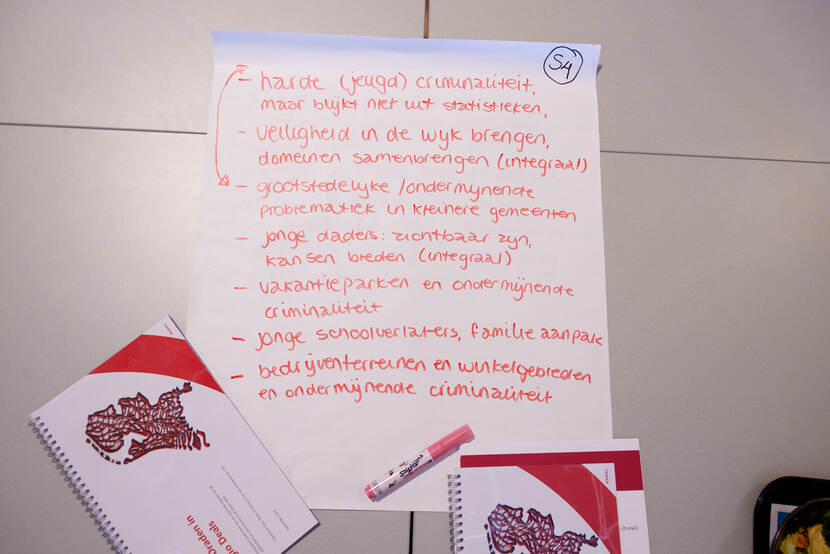 S4
- harde (jeugd) criminaliteit,
maar blijkt niet uit statistieken,
- veiligheid in de wijk brengen,
domeinen samenbrengen (integraal)
- grootstedelijke / ondermijnende
problematiek in kleinere gemeenten
- jonge daders: zichtbaar zijn,
kansen bieden (integraal)
- vakantieparken en ondermijnende
criminaliteit
- jonge schoolverlaters, familie aanpak
- bedrijventerreinen en winkelgebieden
en ondermijnende criminaliteit
Draden in
gio Deals